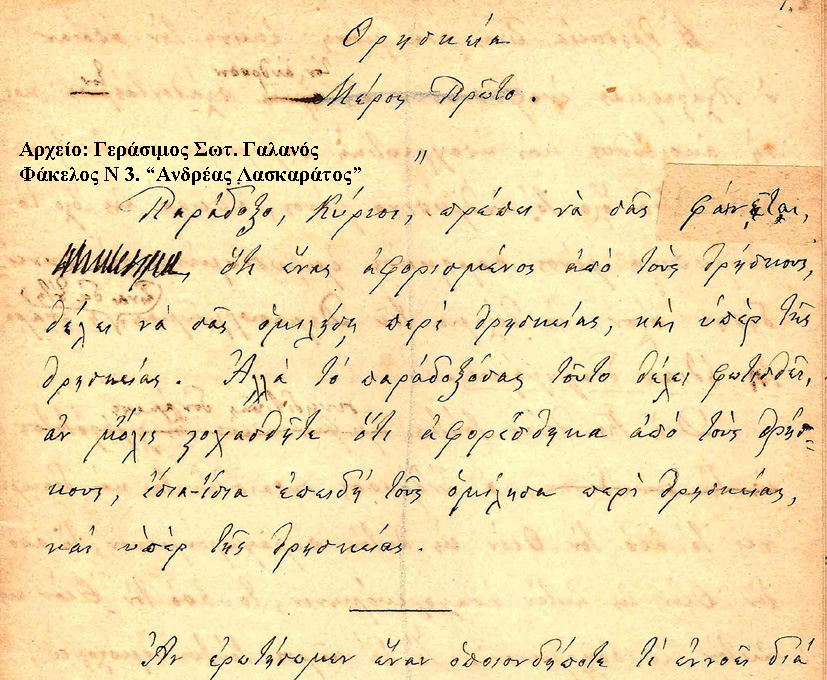 Θρησκεία
Μέρος Πρῶτο.
Αρχείο: Γεράσιμος Σωτ. Γαλανός
Φάκελος Ν 3. “Ανδρέας Λασκαράτος”
"
Παράδοξο, Κύριοι, πρέπει νὰ σᾶς φάνεται,
ὅτι ἕνας ἀφορισμένος ἀπὸ τοὺς θρήσκους,
θέλει νὰ σᾶς ὁμιλήση περὶ θρησκείας, καὶ ὑπὲρ τῆς
θρησκείας. Ἀλλὰ τὸ παράδοξόσας τοῦτο θέλει φωτισθεῖ,
ἂν μόλις στοχασθῆτε ὅτι ἀφορέσθηκα ἀπὸ τοὺς θρήσ-
κους, ἴσια-ἴσια ἐπειδὴ τοὺς ὁμίλησα περὶ θρησκείας,
καὶ ὑπὲρ τῆς θρησκείας.
Ἂν ἐρωτήσωμεν ἕναν ὁποιονδήποτε τί ἐννοεῖ διὰ